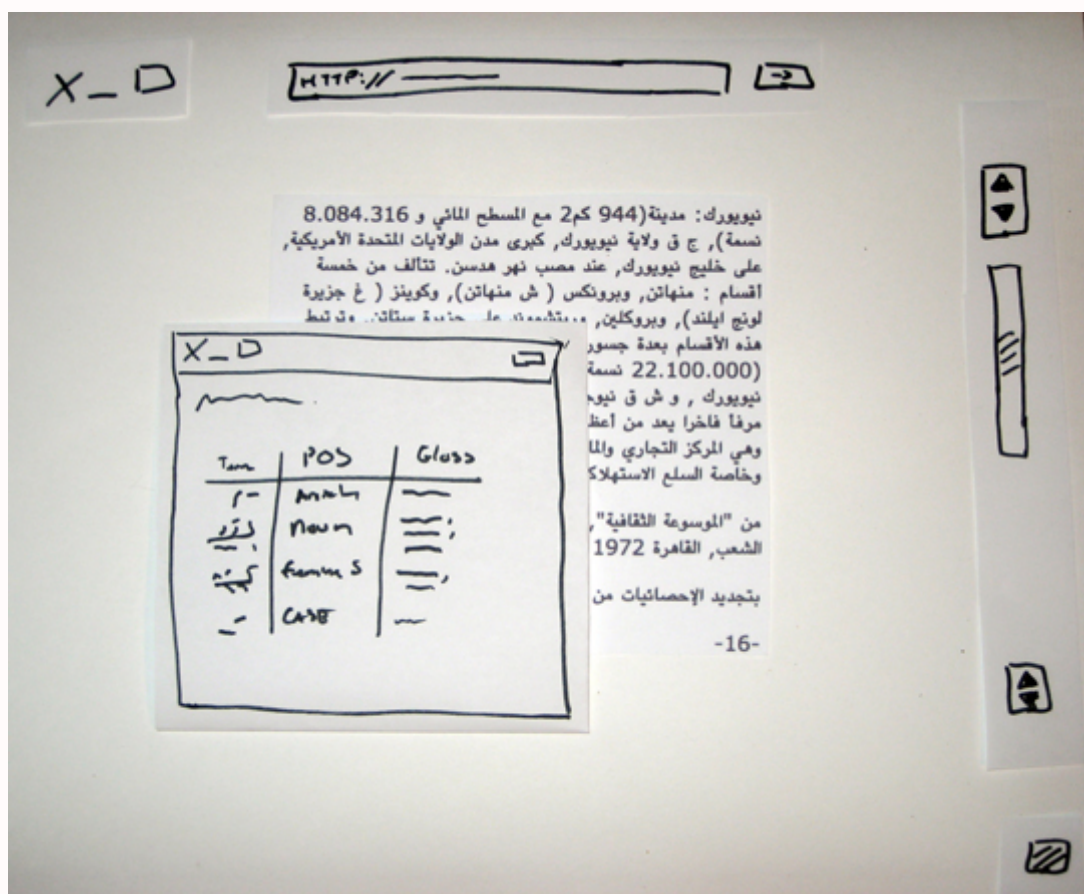 X _ D
HTTP://
نيويورك: مدينة(944 كم2 مع المسطح المائي و 8.084.316
نسمة), ج ق ولاية نيويورك, كبرى مدن الولايات المتحدة الأمريكية,
على خليج نيويورك, عند مصب نهر هدسن. تتألف من خمسة
أقسام : منهاتن, وبرونكس ( ش منهاتن), وكوينز ( غ جزيرة
لونج ايلند), وبروكلين, وريتشموند على جزيرة ستاتن. وترتبط
هذه الأقسام بعدة جسور
(22.100.000 نسمة
نيويورك , و ش ق نيوج
مرفأ فاخرا يعد من أعظ
وهي المركز التجاري والما
وخاصة السلع الاستهلاك
من "الموسوعة الثقافية",
الشعب, القاهرة 1972
بتجديد الإحصائيات من
-16-
X _ D
POS Gloss
Noun
CASE